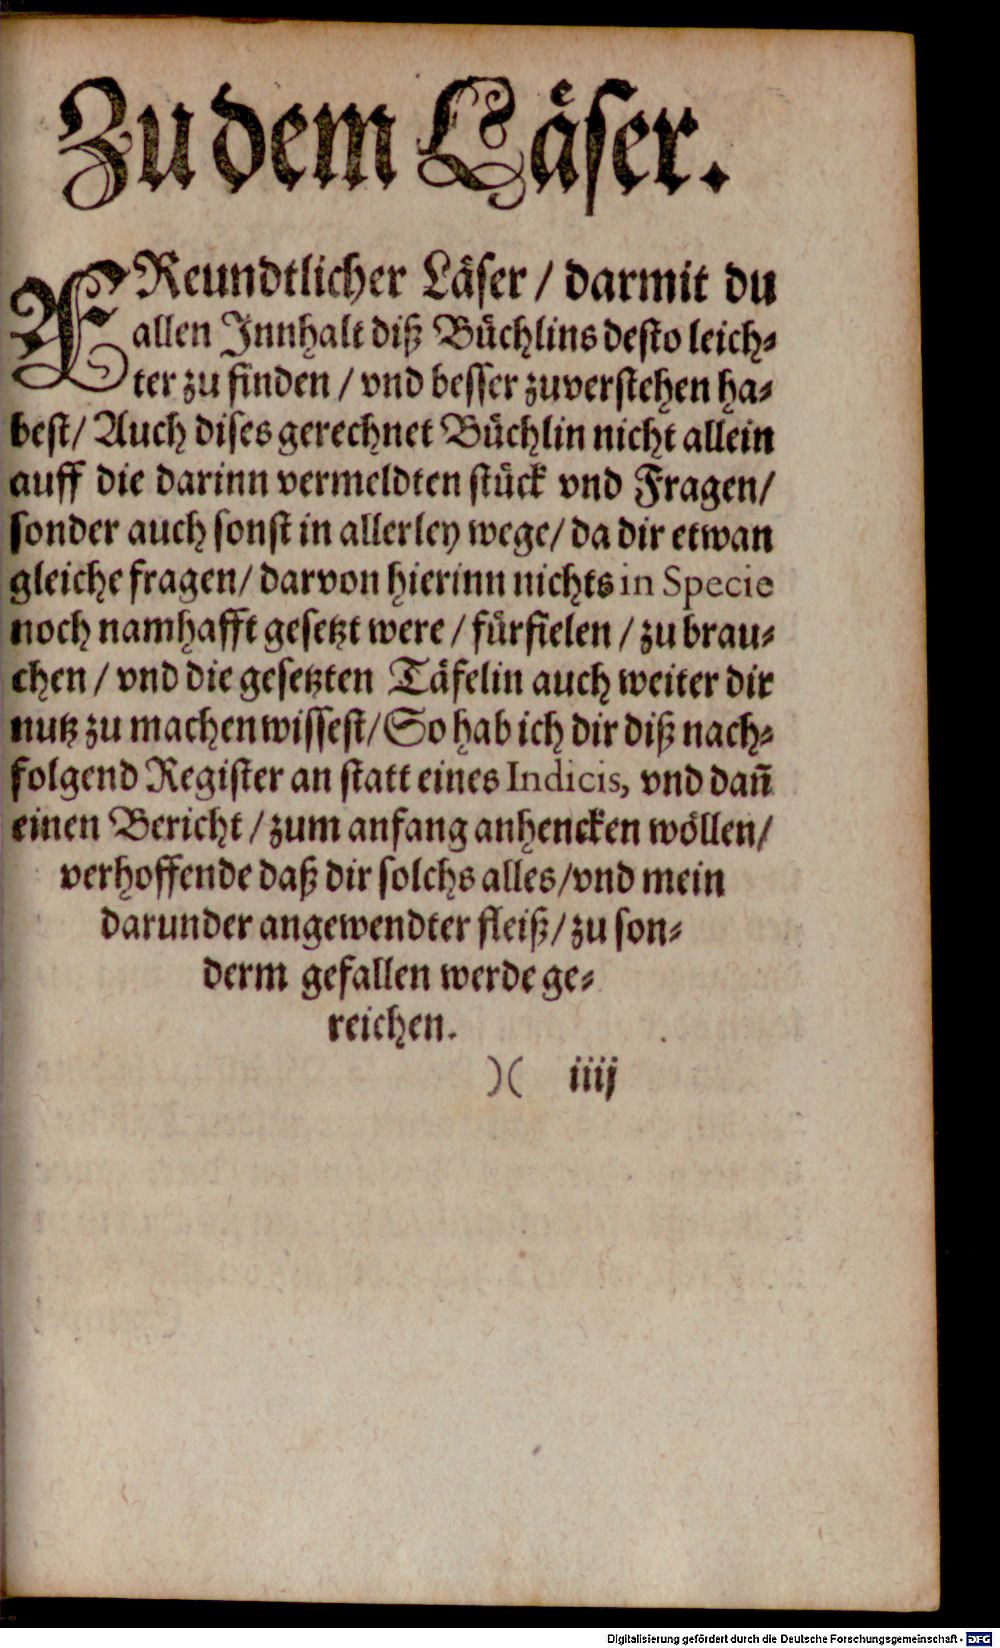 Zu dem Läser.
FReundtlicher Läser / darmit du
allen Innhalt diß Büchlins desto leich-
ter zu finden / vnd besser zuverstehen ha-
best / Auch dises gerechnet Büchlin nicht allein
auff die darinn vermeldten stück vnd Fragen /
sonder auch sonst in allerley wege / da dir etwan
gleiche fragen / darvon hierinn nichts in Specie
noch namhafft gesetzt were / fürfielen / zu brau-
chen / vnd die gesetzten Täfelin auch weiter dir
nutz zu machen wissest / So hab ich dir diß nach-
folgend Register an statt eines Indicis, vnd dañ
einen Bericht / zum anfang anhencken wöllen /
verhoffende daß dir solchs alles / vnd mein
darunder angewendter fleiß / zu son-
derm gefallen werde ge-
reichen.
)( iiij
Digitalisierung gefördert durch die Deutsche Forschungsgemeinschaft - DFG